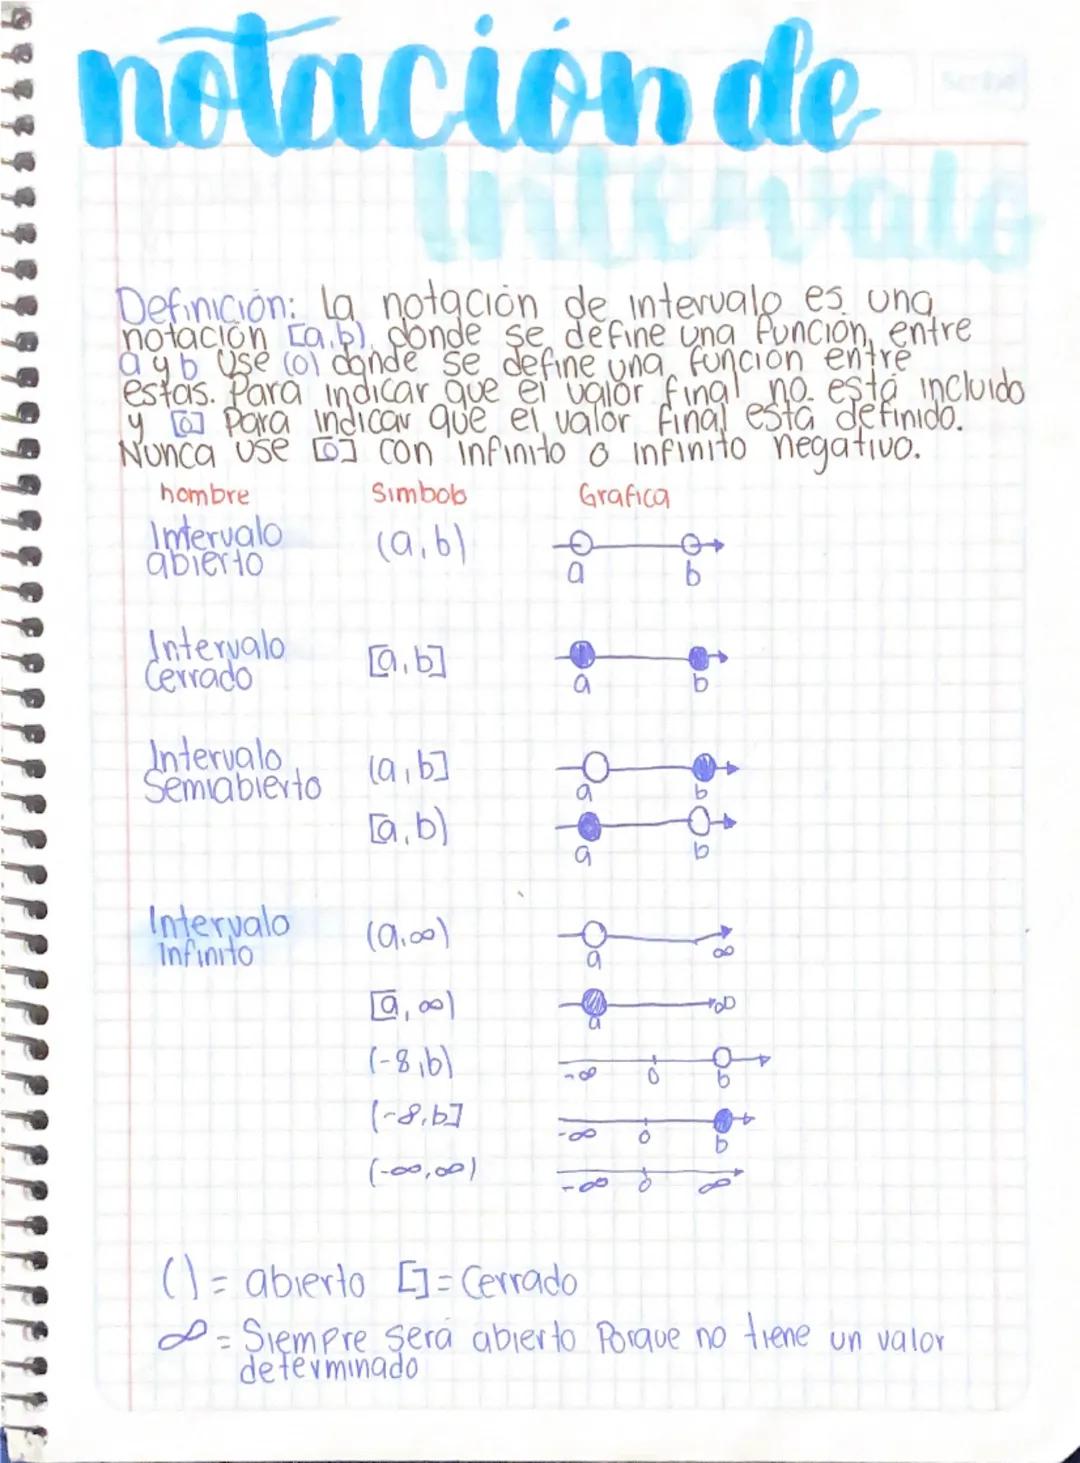 notación de
Intervalo
Definición: La notación de intervalo es una
notación [a,b), donde se define una función, entre
a y b Use (o) donde se define una función entre
estas. Para indicar que el valor final no está incluido
y [o] Para indicar que el valor final está definido.
Nunca use [o] con infinito o infinito negativo.
nombre Simbolo Grafica
Intervalo (a,b)
abierto
a b
Intervalo [a,b]
Cerrado
a b
Intervalo (a,b]
Semiabierto
a b
[a,b)
a b
Intervalo (a,∞)
Infinito
a ∞
[a,∞) ∞
a
(-8,b)
-∞ 0 b
(-8,b]
-∞ 0 b
(-∞,∞)
-∞ 0 ∞
()= abierto []= Cerrado
∞ = Siempre será abierto Porque no tiene un valor
determinado